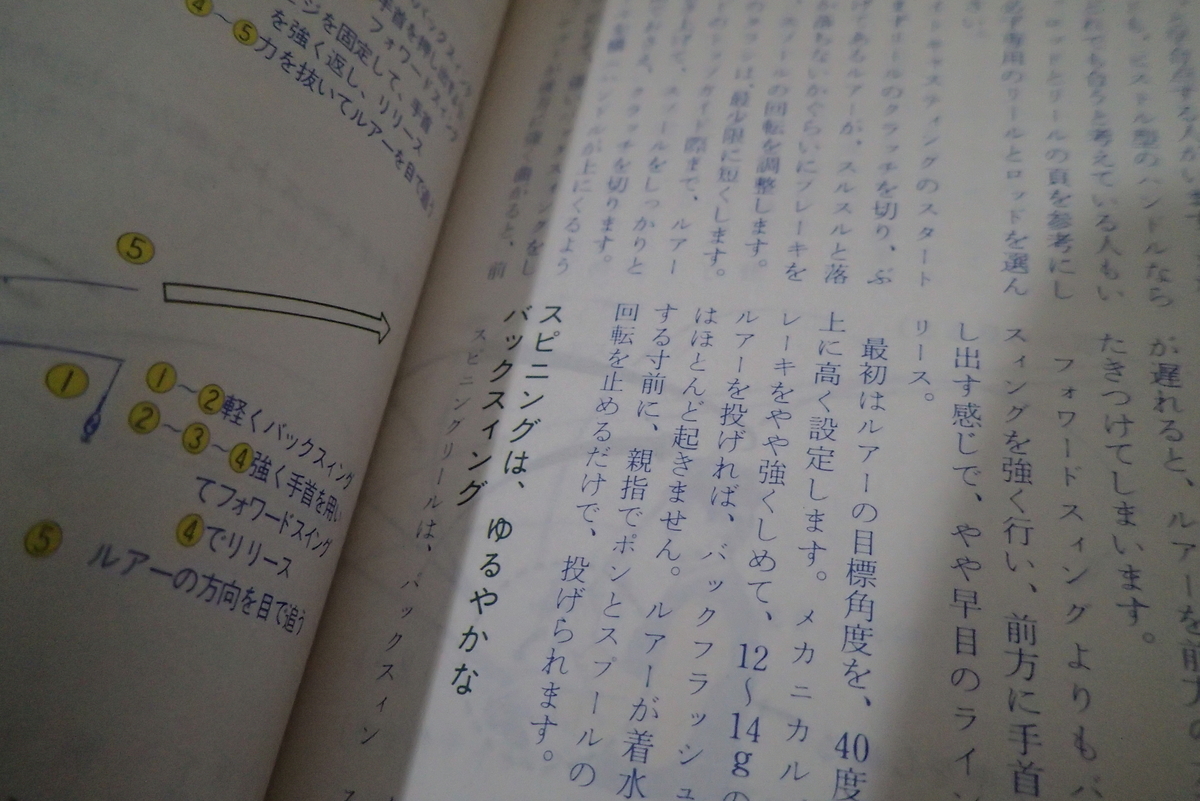 が遅れると、ルアーを前方の
たきつけてしまいます。
フォワードスィングよりもバ
スィングを強く行い、前方に手首
し出す感じで、やや早目のライン
リース。
最初はルアーの目標角度を、40度
上に高く設定します。メカニカル
レーキをやや強くしめて、12〜14gの
ルアーを投げれば、バックフラッシュ
はほとんど起きません。ルアーが着水
する寸前に、親指でポンとスプールの
回転を止めるだけで、投げられます。
スピニングは、ゆるやかな
バックスイング
スピニングリールは、バックスィン
も、ピストル型のハンドルなら
どれでも合うと考えている人もい
ロッドとリールの頁を参考にし
必ず専用のリールとロッドを選ん
さい。
キャスティングのスタート
まずリールのクラッチを切り、ぶ
げてあるルアーが、スルスルと落
か落ちないかぐらいにブレーキを
スプールの回転を調整します。
は、最少限に短くします。
のトップガイド際まで、ルアー
スプールをしっかりと
クラッチを切ります。
ハンドルが上にくるよう
曲がると、前
フォワードスイング
ジを固定して、手首
を強く返し、リリース
④〜⑤力を抜いてルアーを目で追う
⑤
①
①〜②軽くバックスィング
②〜③〜④強く手首を用い
てフォワードスイング
④でリリース
⑤ ルアーの方向を目で追う